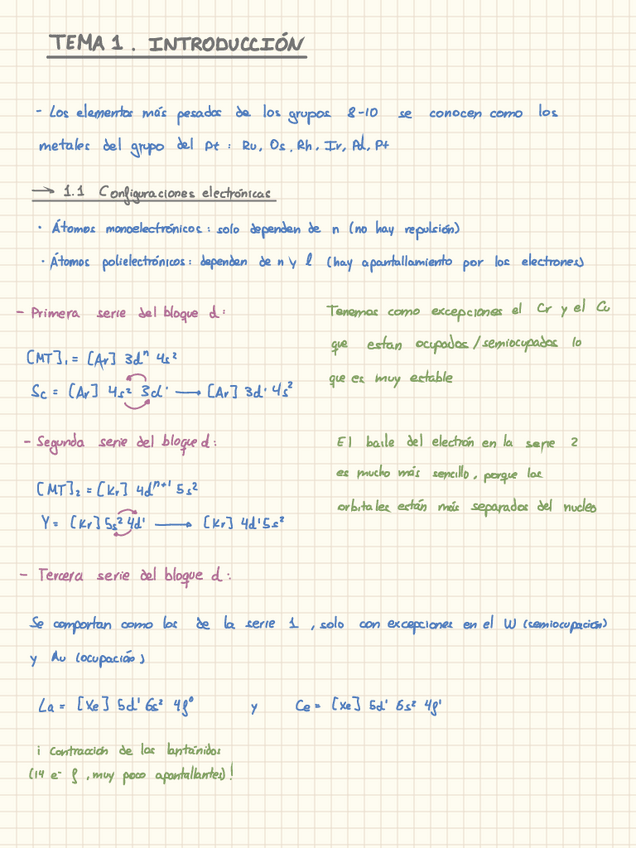 TEMA 1. INTRODUCCIÓN
- Los elementos más pesados de los grupos 8-10 se conocen como los
metales del grupo del Pt : Ru, Os, Rh, Ir, Pd, Pt
→ 1.1 Configuraciones electrónicas
· Átomos monoelectrónicos : solo dependen de n (no hay repulsión)
· Átomos polielectrónicos : dependen de n y l (hay apantallamiento por los electrones)
- Primera serie del bloque d:
[MT]₁ = [Ar] 3dⁿ 4s²
Sc = [Ar] 4s² 3d¹ → [Ar] 3d¹ 4s²
Tenemos como excepciones el Cr y el Cu
que estan ocupados/semiocupados lo
que es muy estable
- Segunda serie del bloque d:
[MT]₂ = [Kr] 4dⁿ⁺¹ 5s²
Y = [Kr] 5s² 4d¹ → [Kr] 4d¹ 5s²
El baile del electrón en la serie 2
es mucho más sencillo, porque los
orbitales están más separados del nucleo
- Tercera serie del bloque d:
Se comportan como los de la serie 1, solo con excepciones en el W (semiocupación)
y Au (ocupación)
La = [Xe] 5d¹ 6s² 4f⁰ y Ce = [Xe] 5d¹ 6s² 4f¹
¡ Contracción de los lantánidos
(14 e⁻ f, muy poco apantallantes)!